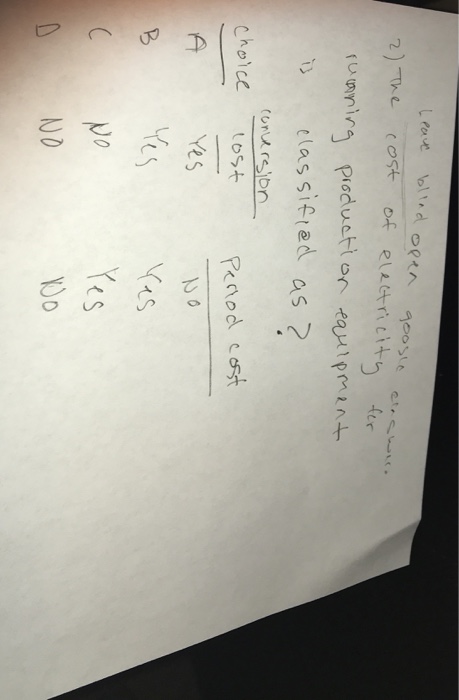 Leave blind open google answer.
2) The cost of electricity for
running production equipment
is classified as?
Choice conversion cost Period cost
A Yes No
B Yes Yes
C No Yes
D No No